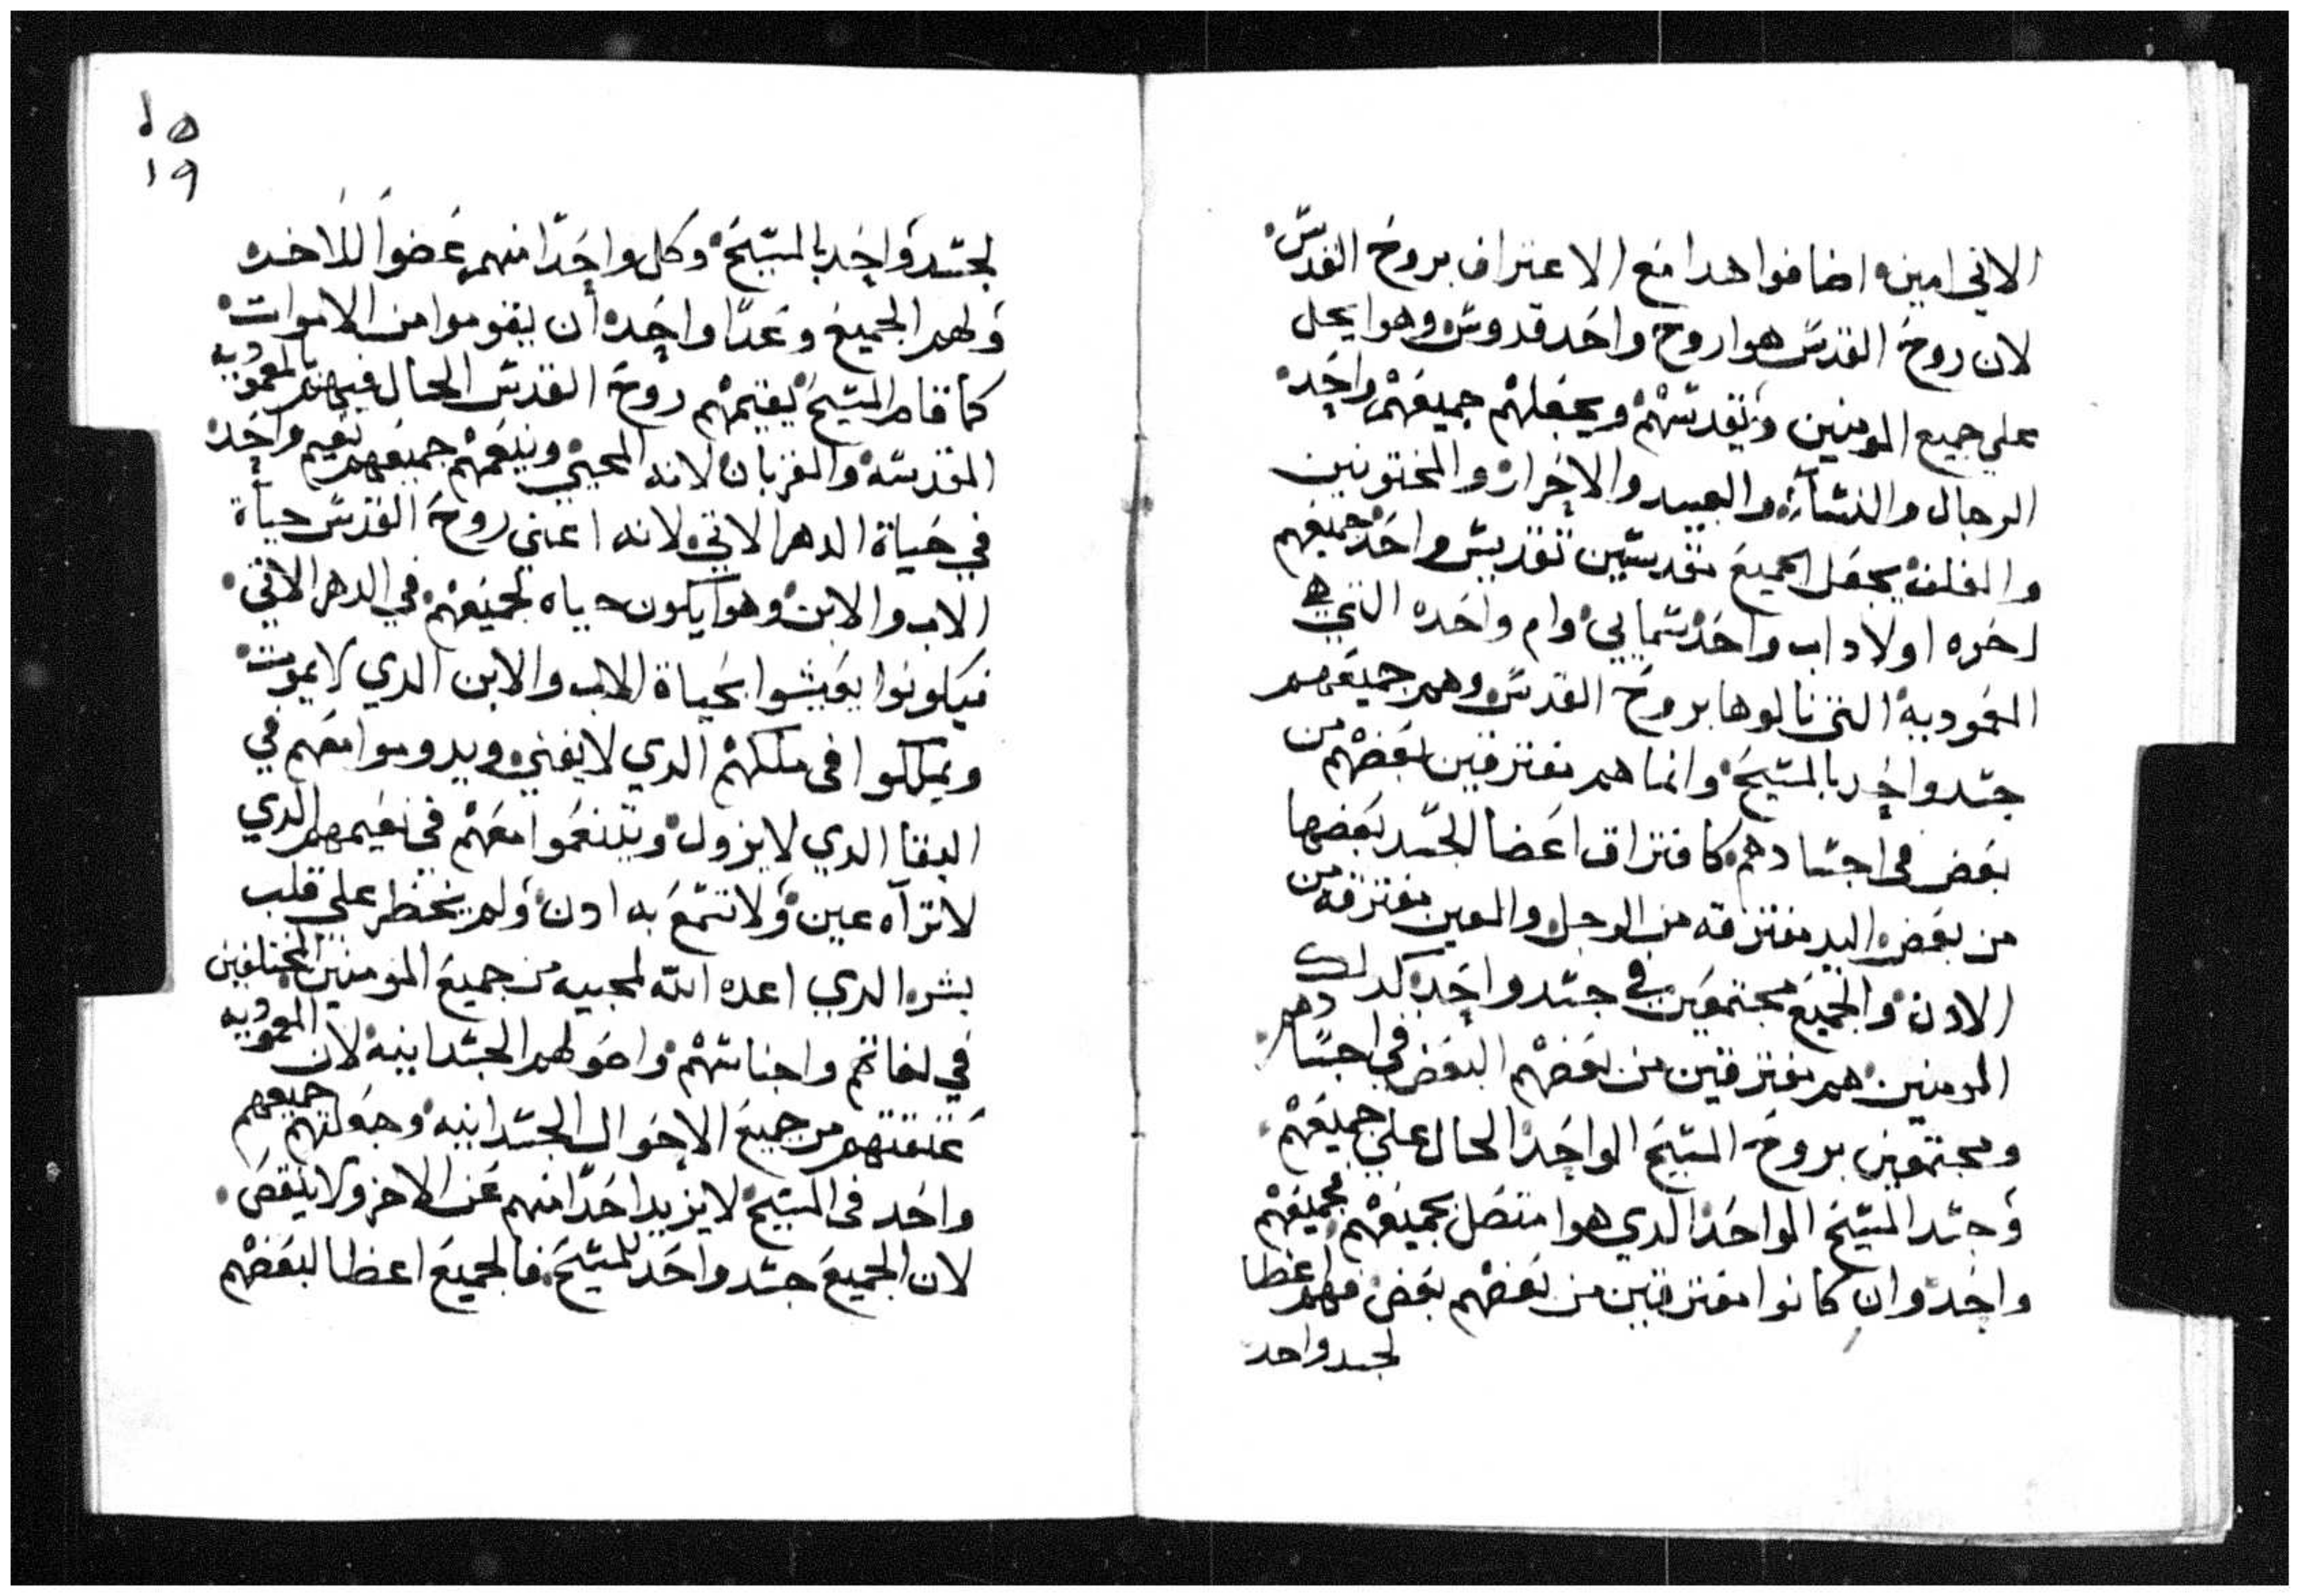 الاتي امين. اضافوا هدا مع الاعتراف بروح القدس.
لان روح القدس هوا روح واحد قدوس وهوا يحل
علي جميع المومنين ويقدسهم ويجعلهم جميعهم واحد.
الرجال والنسآء. والعبيد والاحرار. والمختونين
والغلف. يجعل الجميع متقدسين تقديس واحد. جميعهم
اخوه اولاد اب واحد سمايي. وام واحده التي هي
المعموديه. التي نالوها بروح القدس. وهم جميعهم
جسد واحد بالمسيح. وانما هم مفترقين بعضهم من
بعض في اجسادهم. كافتراق اعضا الجسد بعضها
من بعض. اليد مفترقه من الرجل. والعين مفترقه من
الادن. والجميع مجتمعين في جسد واحد. كدلك
المومنين. هم مفترقين من بعضهم البعض في اجسادهم.
ومجتمعين بروح المسيح الواحد الحال علي جميعهم.
وجسد المسيح الواحد الدي هوا متصل بجميعهم. فجميعهم
واحد. وان كانوا مفترقين من بعضهم بعض. فهم اعضا
لجسد واحد
١٥
١٩
لجسد واحد بالمسيح. وكل واحدا منهم عضوا للاخر.
ولهم الجميع وعدا واحد. ان يقوموا من الاموات.
كما قام المسيح. يقيمهم روح القدس الحال فيهم بالمعموديه
المقدسه. والقربان لانه المحيي. وينعمهم جميعهم نعيم واحد.
في حياة الدهر الاتي. لانه اعني روح القدس حياة
الاب والابن. وهوا يكون حياه لجميعهم. في الدهر الاتي.
فيكونوا يعيشوا بحياة الاب والابن الدي لا يموت.
ويملكوا في ملكهم الدي لا يفني. ويدوموا معهم في
البقا الدي لا يزول. ويتنعموا معهم في نعيمهم الدي
لا تراه عين. ولا تسمع به ادن. ولم يخطر علي قلب
بشر. الدي اعده الله لمحبيه من جميع المومنين المختلفين
في لغاتهم واجناسهم. واصولهم الجسدانيه. لان المعموديه
عتقتهم من جميع الاحوال الجسدانيه. وجعلتهم جميعهم
واحد في المسيح. لا يزيد احدا منهم عن الاخر ولا ينقص.
لان الجميع جسد واحد للمسيح. فالجميع اعضا لبعضهم